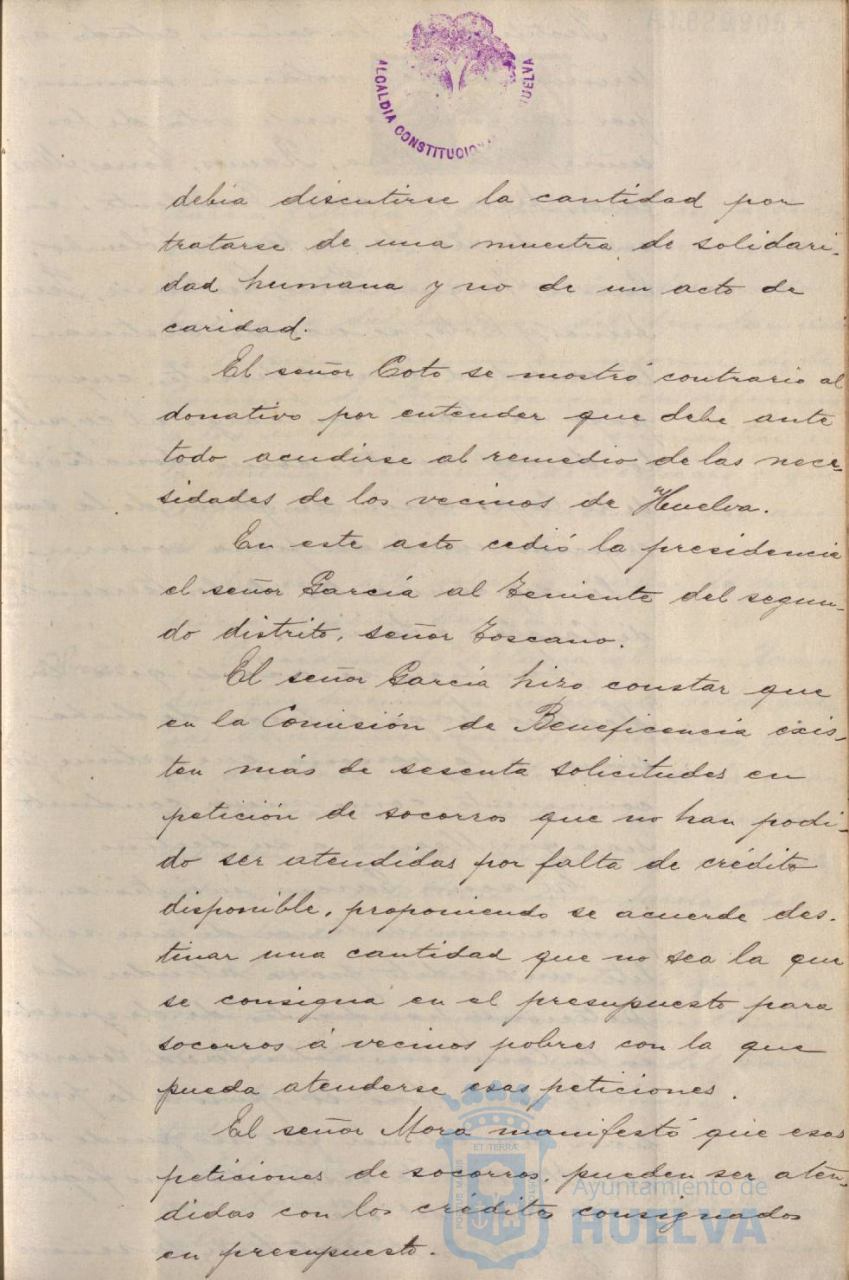 ALCALDIA CONSTITUCIONAL HUELVA
debia discutirse la cantidad por
tratarse de una muestra de solidari-
dad humana y no de un acto de
caridad.
El señor Coto se mostró contrario al
donativo por entender que debe ante
todo acudirse al remedio de las nece-
sidades de los vecinos de Huelva.
En este acto cedió la presidencia
el señor García al Teniente del segun-
do distrito, señor Toscano.
El señor García hizo constar que
en la Comisión de Beneficencia exis-
ten más de sesenta solicitudes en
petición de socorros que no han podi-
do ser atendidas por falta de crédito
disponible, proponiendo se acuerde des-
tinar una cantidad que no sea la que
se consigna en el presupuesto para
socorros á vecinos pobres con la que
pueda atenderse esas peticiones.
El señor Mora manifestó que esas
peticiones de socorros, pueden ser aten-
didas con los créditos consignados
en presupuesto.
ET TERRA
Ayuntamiento de
HUELVA